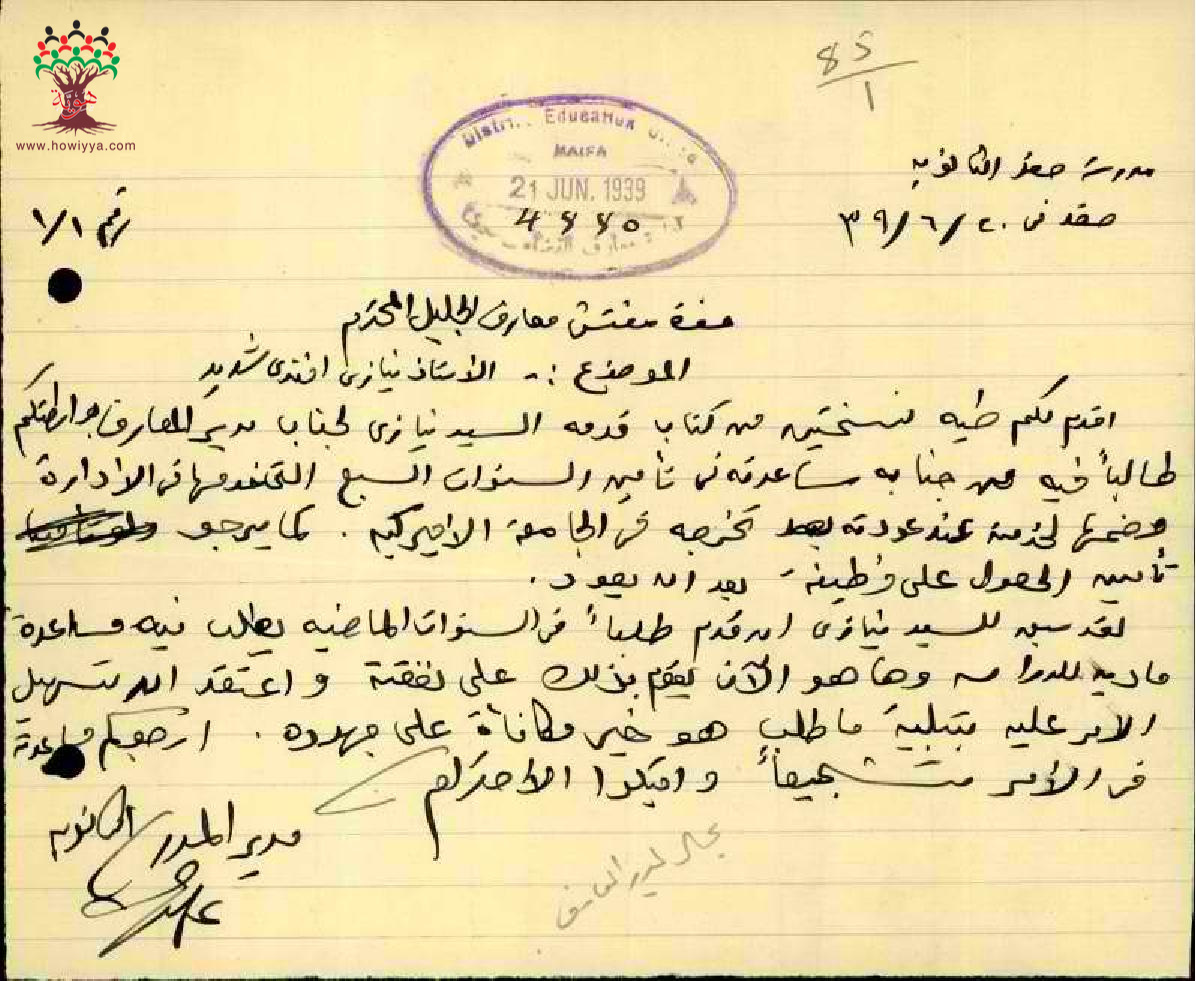 85
1
هوية
www.howiyya.com
District Education Office
HAIFA
21 JUN. 1939
4880
مدرسة صفد الثانويه
صفد في ٢٠/٦/٣٩
رقم ١/١
حضرة مفتش معارف الجليل المحترم
الموضوع :- الاستاذ نيازى افندى شديد
اقدم لكم طيه نسختين من كتاب قدمه السيد نيازى لجناب مدير المعارف بواسطتكم
طالباً فيه من جنابه مساعدته في تأمين السنوات السبع التى خدمها في الادارة
وضمها لخدمته عند عودته بعد تخرجه في الجامعة الاميركيه . كما يرجو
تأمين الحصول على وظيفة بعد ان يعود .
لقد سبق للسيد نيازى ان قدم طلباً في السنوات الماضيه يطلب فيه مساعدة
ماديه للدراسه وها هو الآن يقوم بذلك على نفقته واعتقد ان تسهيل
الامر عليه بتلبية ما طلب هو خير مكافأة على جهوده . ارجوكم مساعدته
في الأمر تشجيعاً واقبلوا الاحترام
مدير المدرسة الثانويه
يحال لمدير المعارف